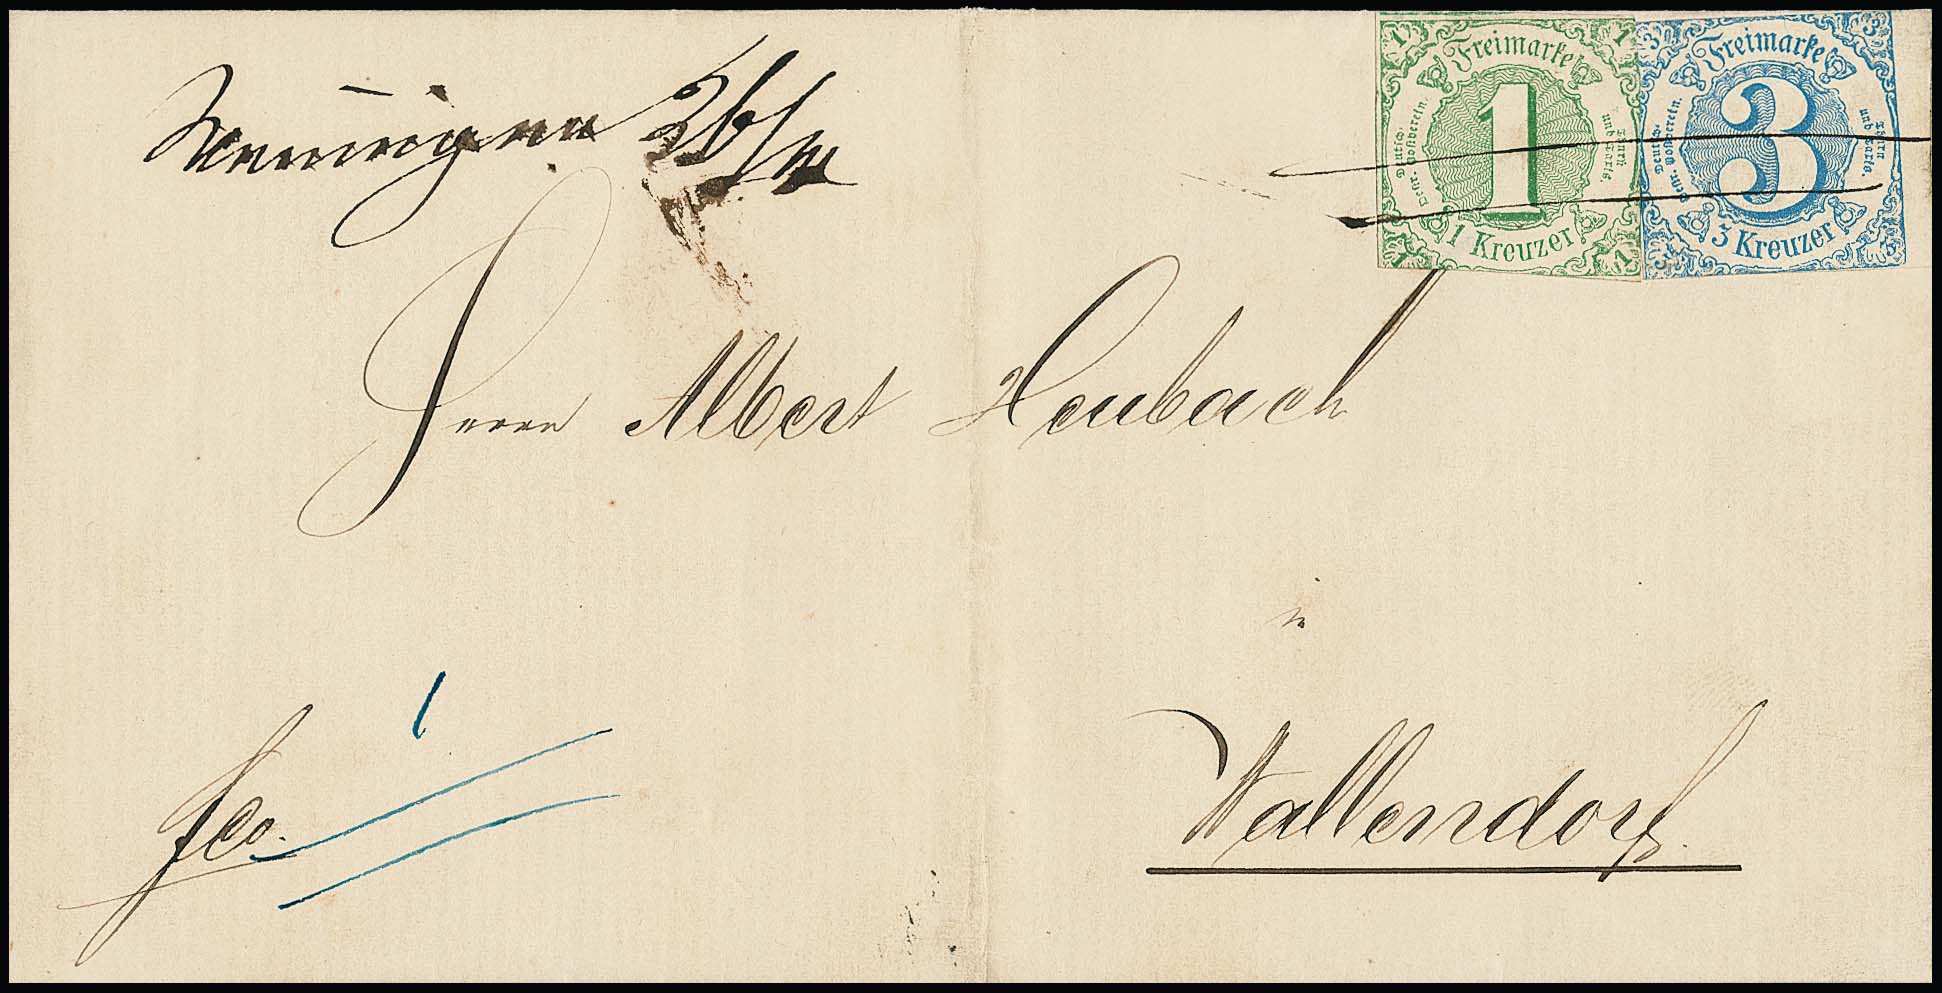 Freimarke
Deutsch-Oestr. Postverein.
1
Thurn und Taxis.
1 Kreuzer
1
1
1
1
Freimarke
Deutsch-Oestr. Postverein.
3
Thurn und Taxis.
3 Kreuzer
3
3
3
3
26/
Herrn Albert Heubach
in
Wallendorf.
fco.
1